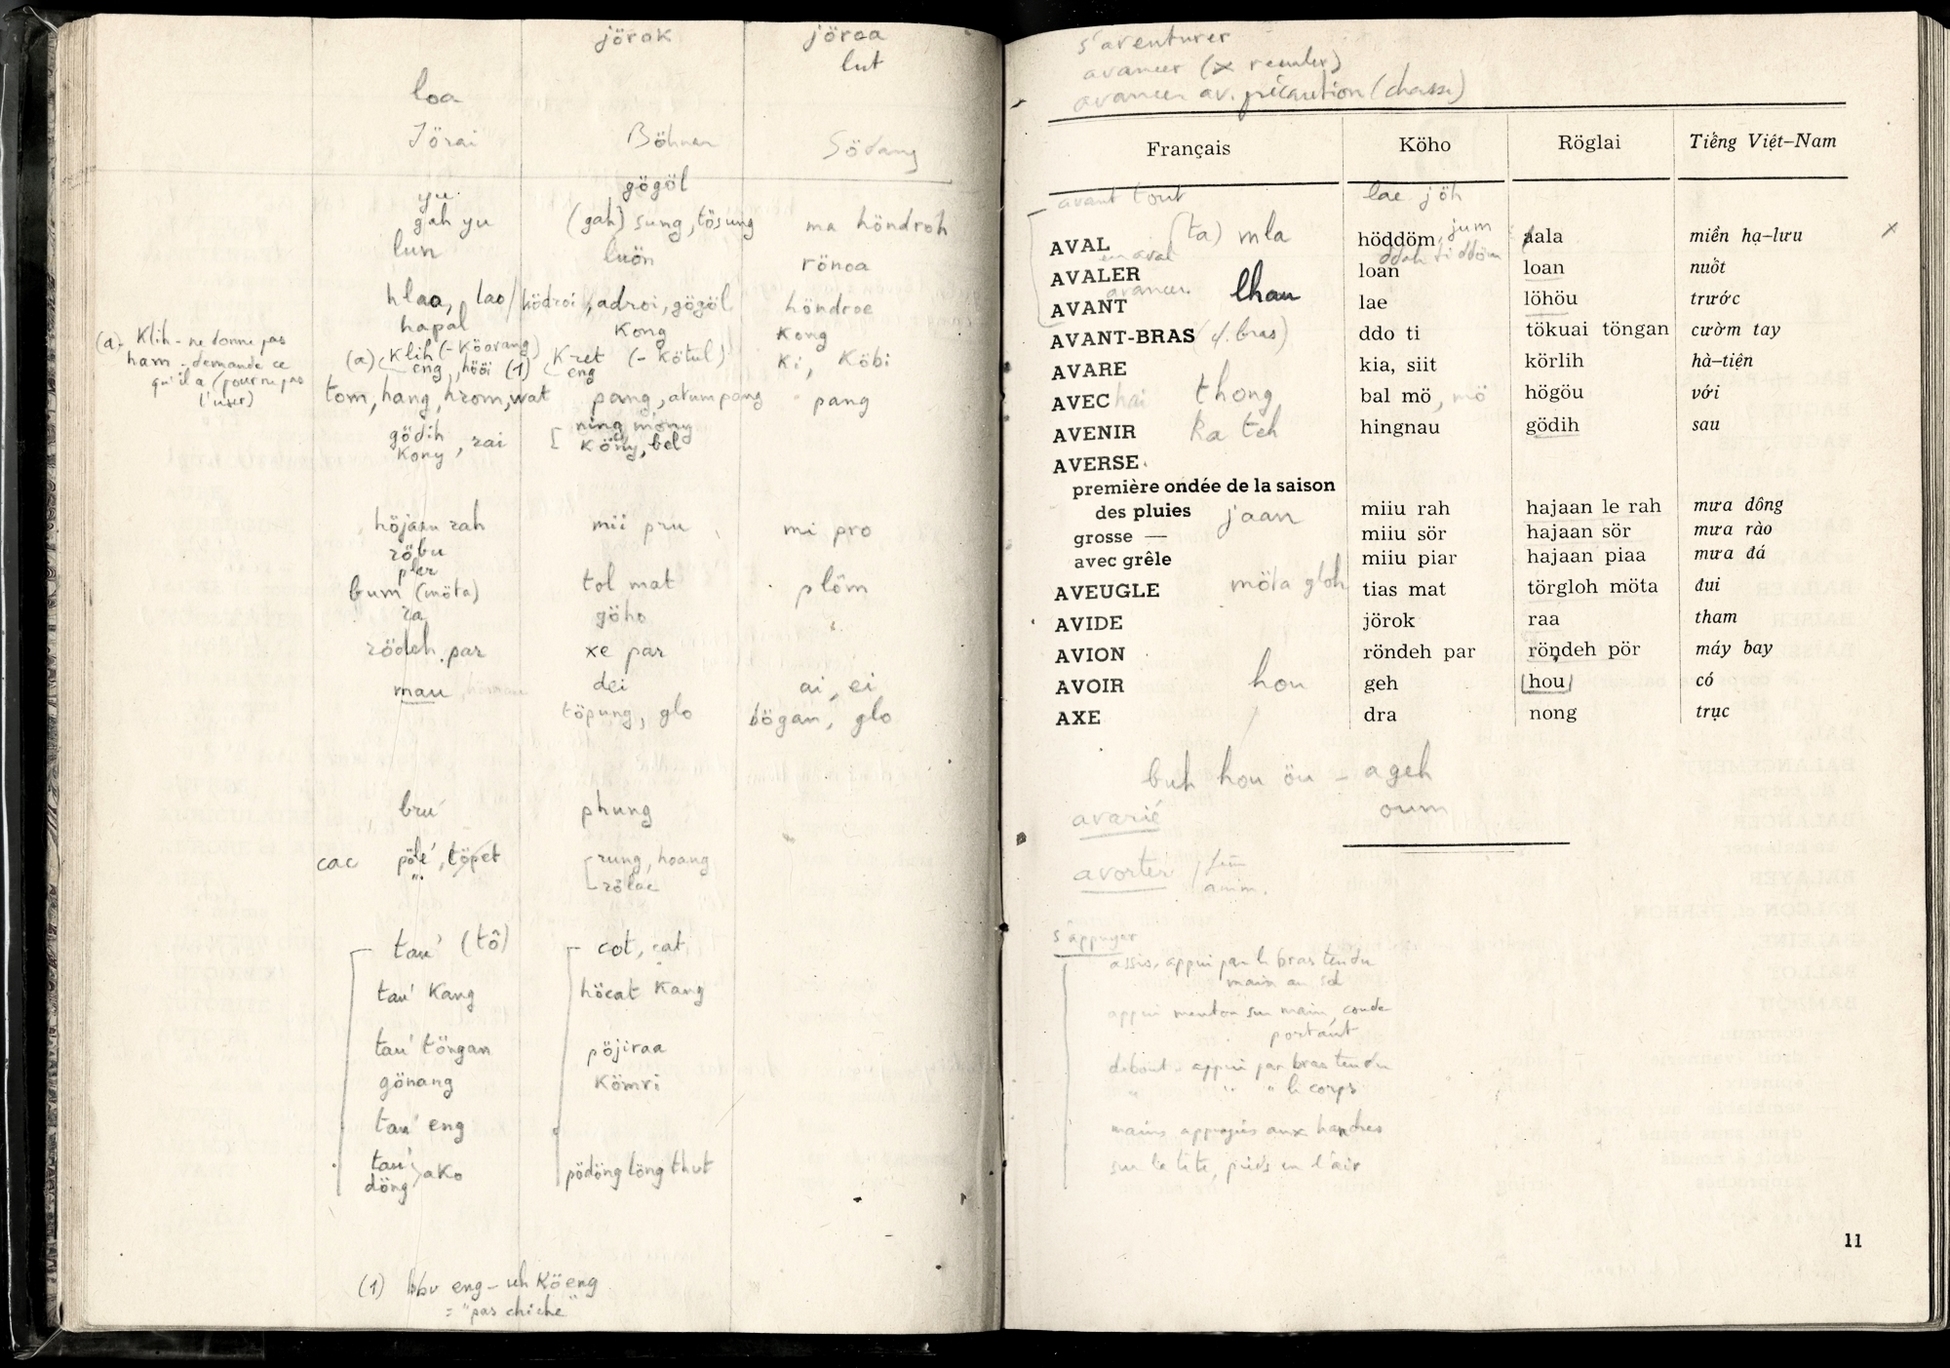 jörok jöroa
lut
loa
Jörai Böhnar Södang
gögöl
yu
gah yu (gah) sung, tösung ma höndroh
lun luön rönoa
hlao, lao hödroi, adroi, gögöl höndroe
hapal kong kong
(a) Klih - ne donne pas
ham - demande ce
qu'il a (pour ne pas
l'user)
(a) Klih (- Köorang) Kret (- Kötul) Ki, Köbi
eng, höôi (1) eng
tom, hang, hrom, wat pang, atum pang pang
gödih ning mong
kony, rai köny, bel
höjan rah mii pru mi pro
röbu
pler
bum (möta) tol mat plôm
ra göho "
rödeh par xe par
mau dei ai, ei
töpung, glo bögan, glo
bru phung
cac pölé, töpet rung, hoang
rölae
tau' (tô) cot, cat
tau' Kang höcat Kang
tau' töngan pöjiraa
gönang Kömri
tau' eng
tau' ako pödöng löng thut
döng
(1) bbu eng - uh Kö eng
= "pas chiche"
s'aventurer
avancer (x reculer)
avancer av. précaution (chasse)
Français Köho Röglai Tiếng Việt–Nam
avant tout lae jöh
AVAL (ta) mla höddöm, jum aala miền hạ–lưu x
en aval ddah ti ddöm
AVALER loan loan nuốt
avancer
AVANT lhau lae löhöu trước
AVANT-BRAS (d. bras) ddo ti tökuai töngan cườm tay
AVARE kia, siit körlih hà–tiện
AVEC hai thong bal mö, mö högöu với
AVENIR ka teh hingnau gödih sau
AVERSE
première ondée de la saison
des pluies jaan miiu rah hajaan le rah mưa dông
grosse — miiu sör hajaan sör mưa rào
avec grêle miiu piar hajaan piaa mưa đá
AVEUGLE möta gloh tias mat törgloh möta đui
AVIDE jörok raa tham
AVION röndeh par röndeh pör máy bay
AVOIR hou geh (hou) có
AXE dra nong trục
buh hou öu - ageh
avarié oum
avorter / fem
anim.
s'appuyer
assis, appui par le bras tendu
main au sol
appui menton sur main, coude
portant
debout, appui par bras tendu
" " " le corps
mains appuyées aux hanches
sur la tête, pieds en l'air
11